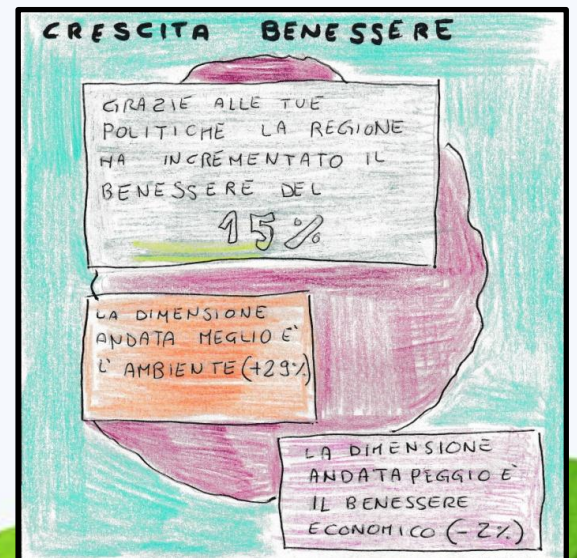 CRESCITA BENESSERE
GRAZIE ALLE TUE
POLITICHE LA REGIONE
HA INCREMENTATO IL
BENESSERE DEL
15%
LA DIMENSIONE
ANDATA MEGLIO E'
L' AMBIENTE (+29%)
LA DIMENSIONE
ANDATA PEGGIO E'
IL BENESSERE
ECONOMICO (-2%)